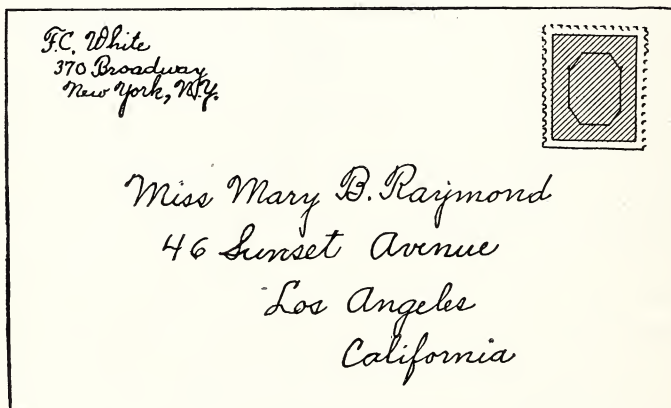 F.C. White
370 Broadway
New York, N.Y.
Miss Mary B. Raymond
46 Sunset Avenue
Los Angeles
California